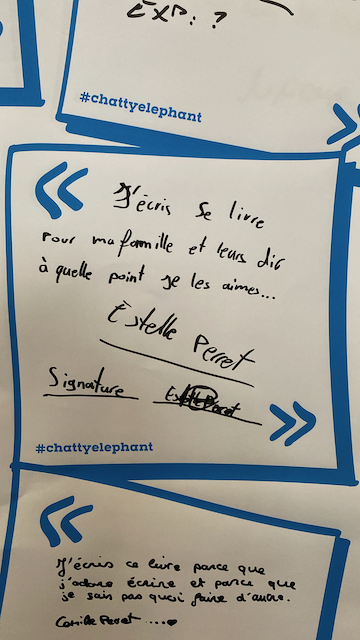 EXP: ?
#chattyelephant
J'écris se livre
Pour ma famille et leurs dir
à quelle point je les aimes...
Estelle Perret
Signature
#chattyelephant
J'écris ce livre parce que
j'adore écrire et parce que
je sais pas quoi faire d'autre.
Camille Perret ....